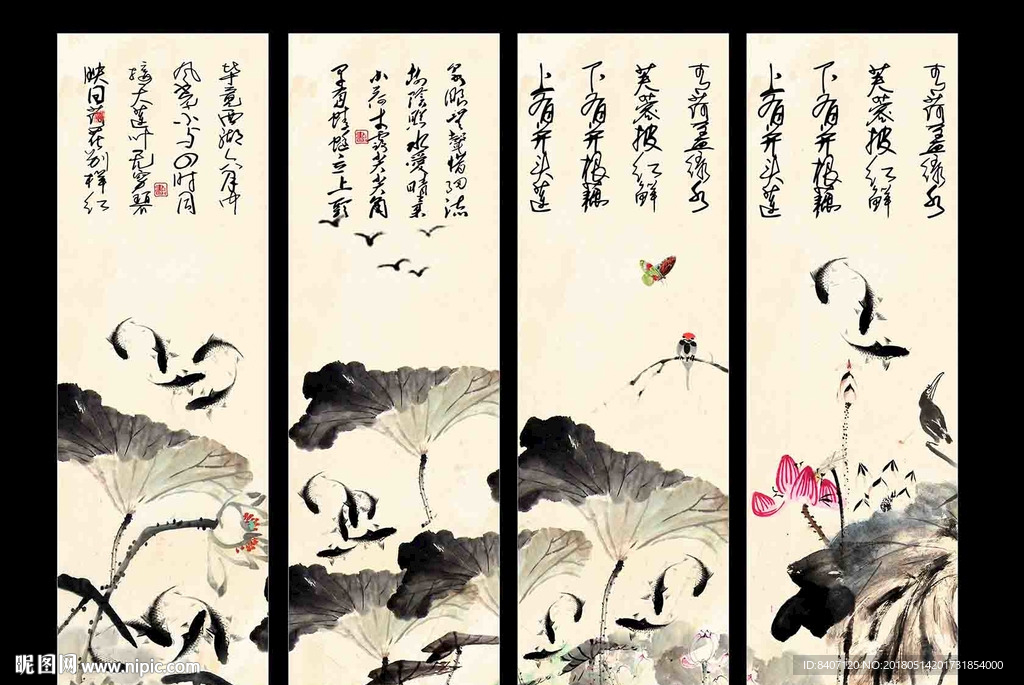 毕竟西湖六月中
风光不与四时同
接天莲叶无穷碧
映日荷花别样红
泉眼无声惜细流
树阴照水爱晴柔
小荷才露尖尖角
早有蜻蜓立上头
青荷盖绿水
芙蓉披红鲜
下有并根藕
上有并头莲
青荷盖绿水
芙蓉披红鲜
下有并根藕
上有并头莲
昵图网 www.nipic.com
ID:8407120 NO:20180514201731854000